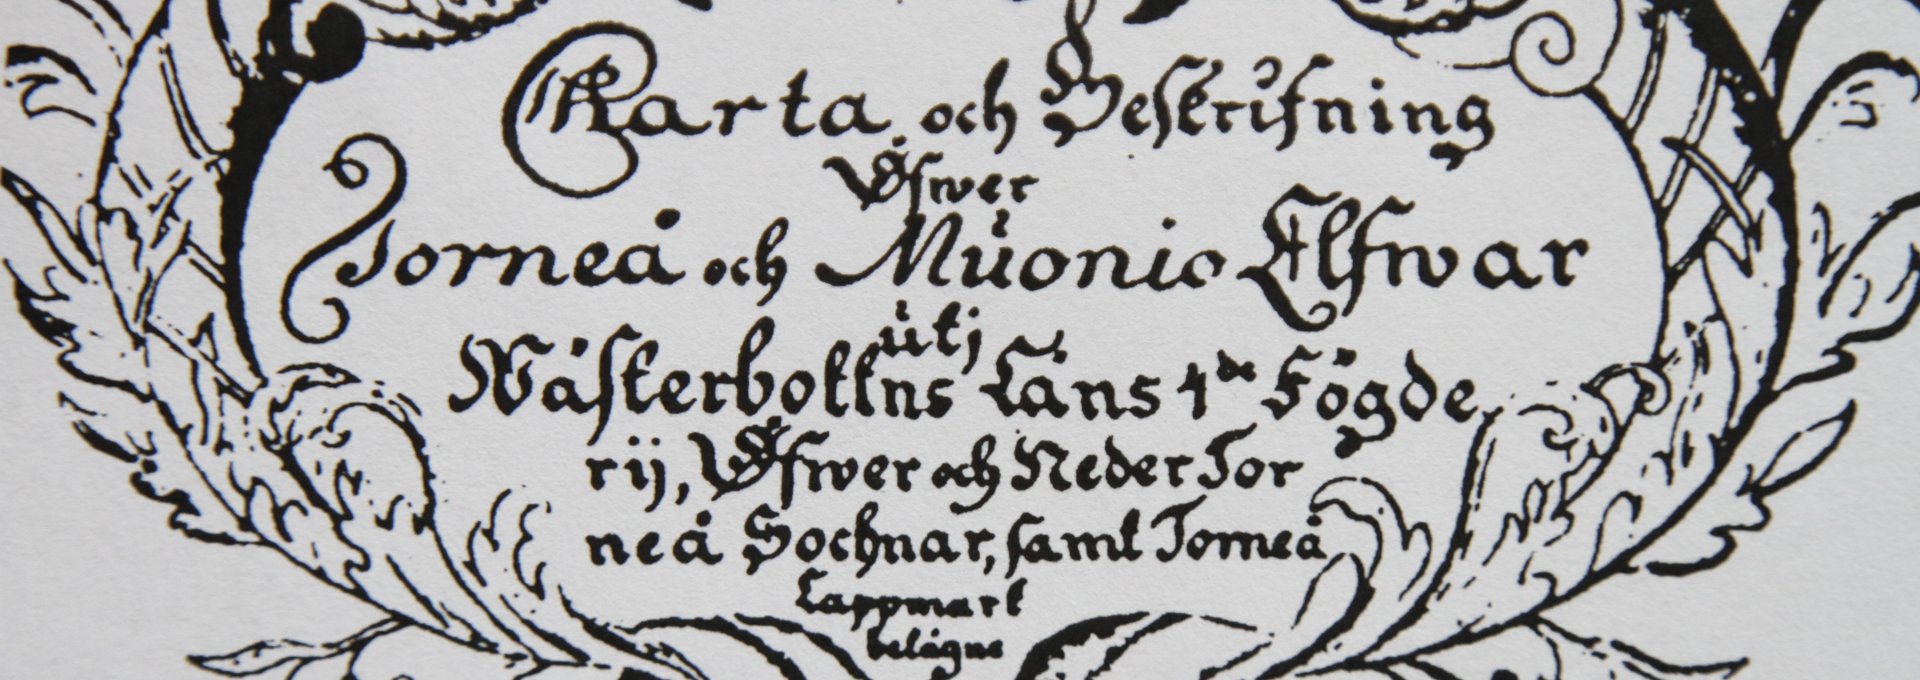 Karta och Beskrifning
Öfwer
Torneå och Muonio Elfwar
utj
Wästerbottns Läns 4de Fögde
rij, Öfwer och Neder Tor
neå Sochnar, samt Torneå
Lappmark
belägne